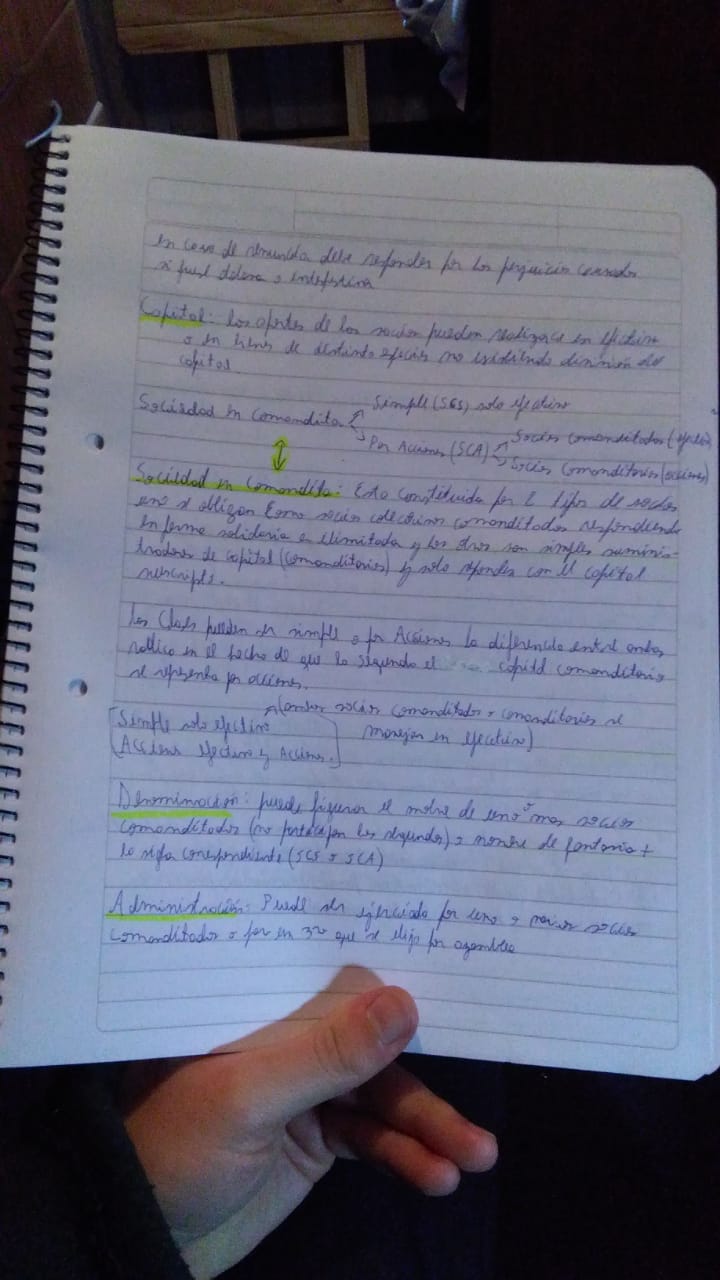 en caso de renuncia debe responder por los perjuicios causados
si fuese dolosa o intespestiva
Capital: los aportes de los socios pueden realizarse en efectivo
o en bienes de distinta especie no existiendo división del
capital.
Sociedad en Comandita Simple (SCS) solo efectivo
Por Acciones (SCA) Socios comanditados (efectivo)
Socios comanditarios (acciones)
Sociedad en Comandita: Esta constituida por 2 tipos de socios
uno se obligan como socios colectivos comanditados respondiendo
en forma solidaria e ilimitada y los otros son simples suminis-
tradores de capital (comanditarios) y solo responden con el capital
suscripto.
Las Clases pueden ser simple o por Acciones la diferencia entre ambas
radica en el hecho de que la segunda el capital comanditario
se representa por acciones.
(ambos socios comanditados o comanditarios se
Simple solo efectivo manejan en efectivo)
Acciones efectivo y Acciones.
Denominación: puede figurar el nombre de uno o mas socios
comanditados (no los segundos) o nombre de fantasia +
la sigla correspondiente (SCS o SCA)
Administración: Puede ser ejerciada por uno o varios socios
comanditados o por un 3ro que se elija por asamblea